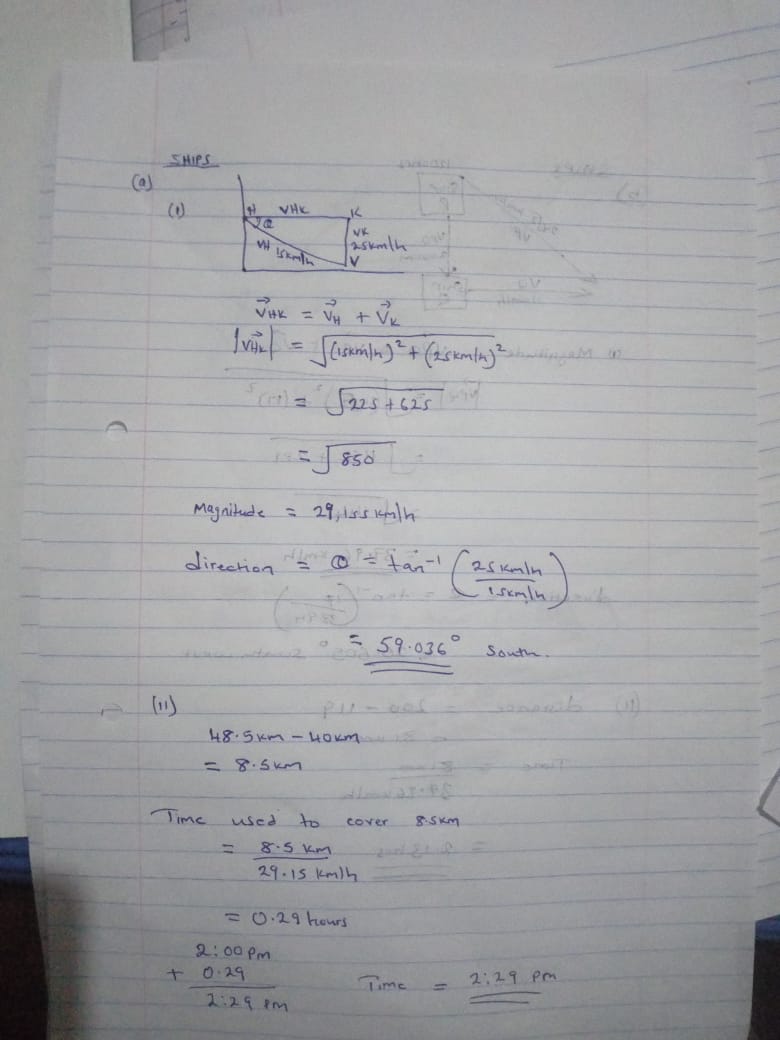 SHIPS
(a)
(i)
H VHK K
θ
VK
25km/h
VH 15km/h V
VHK = VH + VK
|VHK| = √(15km/h)² + (25km/h)²
= √225 + 625
= √850
Magnitude = 29,155 km/h
direction = θ = tan⁻¹ (25km/h / 15km/h)
= 59.036° South.
(ii)
48.5km - 40km
= 8.5km
Time used to cover 8.5km
= 8.5 km
29.15 km/h
= 0.29 hours
2:00 pm
+ 0.29
2:29 pm
Time = 2:29 pm